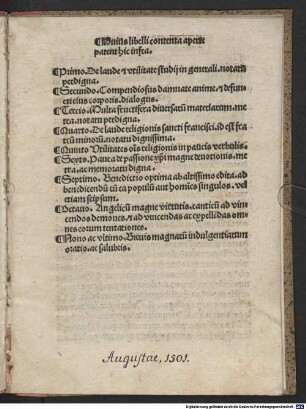 Huius libelli contenta aperte
patent hic infra.
¶Primo. De laude ⁊ vtilitate studij in generali. notatu
perdigna.
¶Secundo. Compendiosus damnate anime. ⁊ defuncti
eius corporis. dialogus.
¶Tercio. Multa fructifera diuersarū materiarum. metra.
notatu perdigna.
¶Quarto. De laude religionis sancti francisci. id est fratrū
minorū. notatu dignissima.
¶Quinto Utilitates oīs religionis in paucis verbulis.
¶Sexto. Pauca de passione xp̄i magne deuotionis. metra.
ac memoratu digna.
¶Septimo. Benedictio optima ab altissimo edita. ad
benedicendū cūcta populū aut homīes singulos. vel
etiam seipsum.
¶Octauo. Angelicū magne virtutis. canticū ad vincendos
demones. ⁊ ad vincendas ac expellēdas omnes
eorum tentationes.
¶Nono ac vltimo. Breuis magnarū indulgentiarum
oratio. ac salubris.
Augustae, 1501.